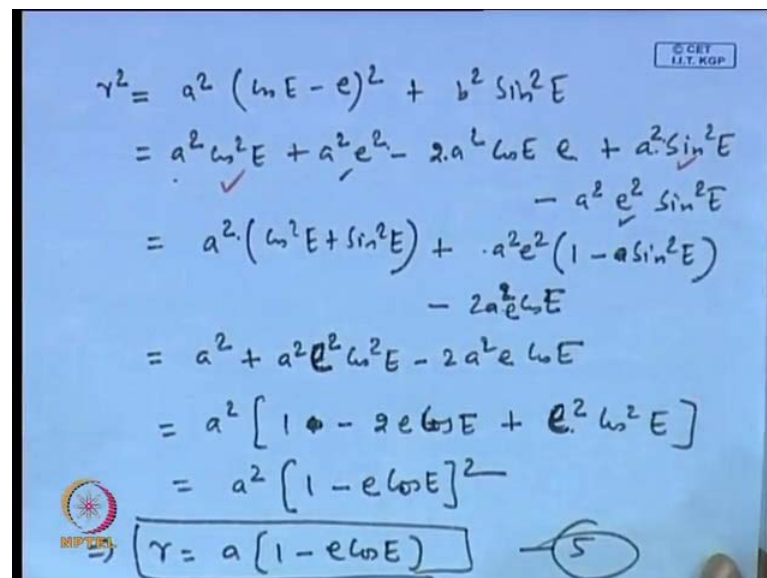 © CET
I.I.T. KGP
r² = a² (cos E - e)² + b² Sin²E
= a² cos²E + a²e² - 2.a² cos E e + a². Sin²E
- a² e² Sin²E
= a².(cos²E + Sin²E) + .a²e²(1 - Sin²E)
- 2a²e cos E
= a² + a²e² cos²E - 2a²e cos E
= a² [1 - 2e cos E + e² cos²E]
= a² [1 - e cos E]²
NPTEL
⇒ r = a (1 - e cos E) - 5